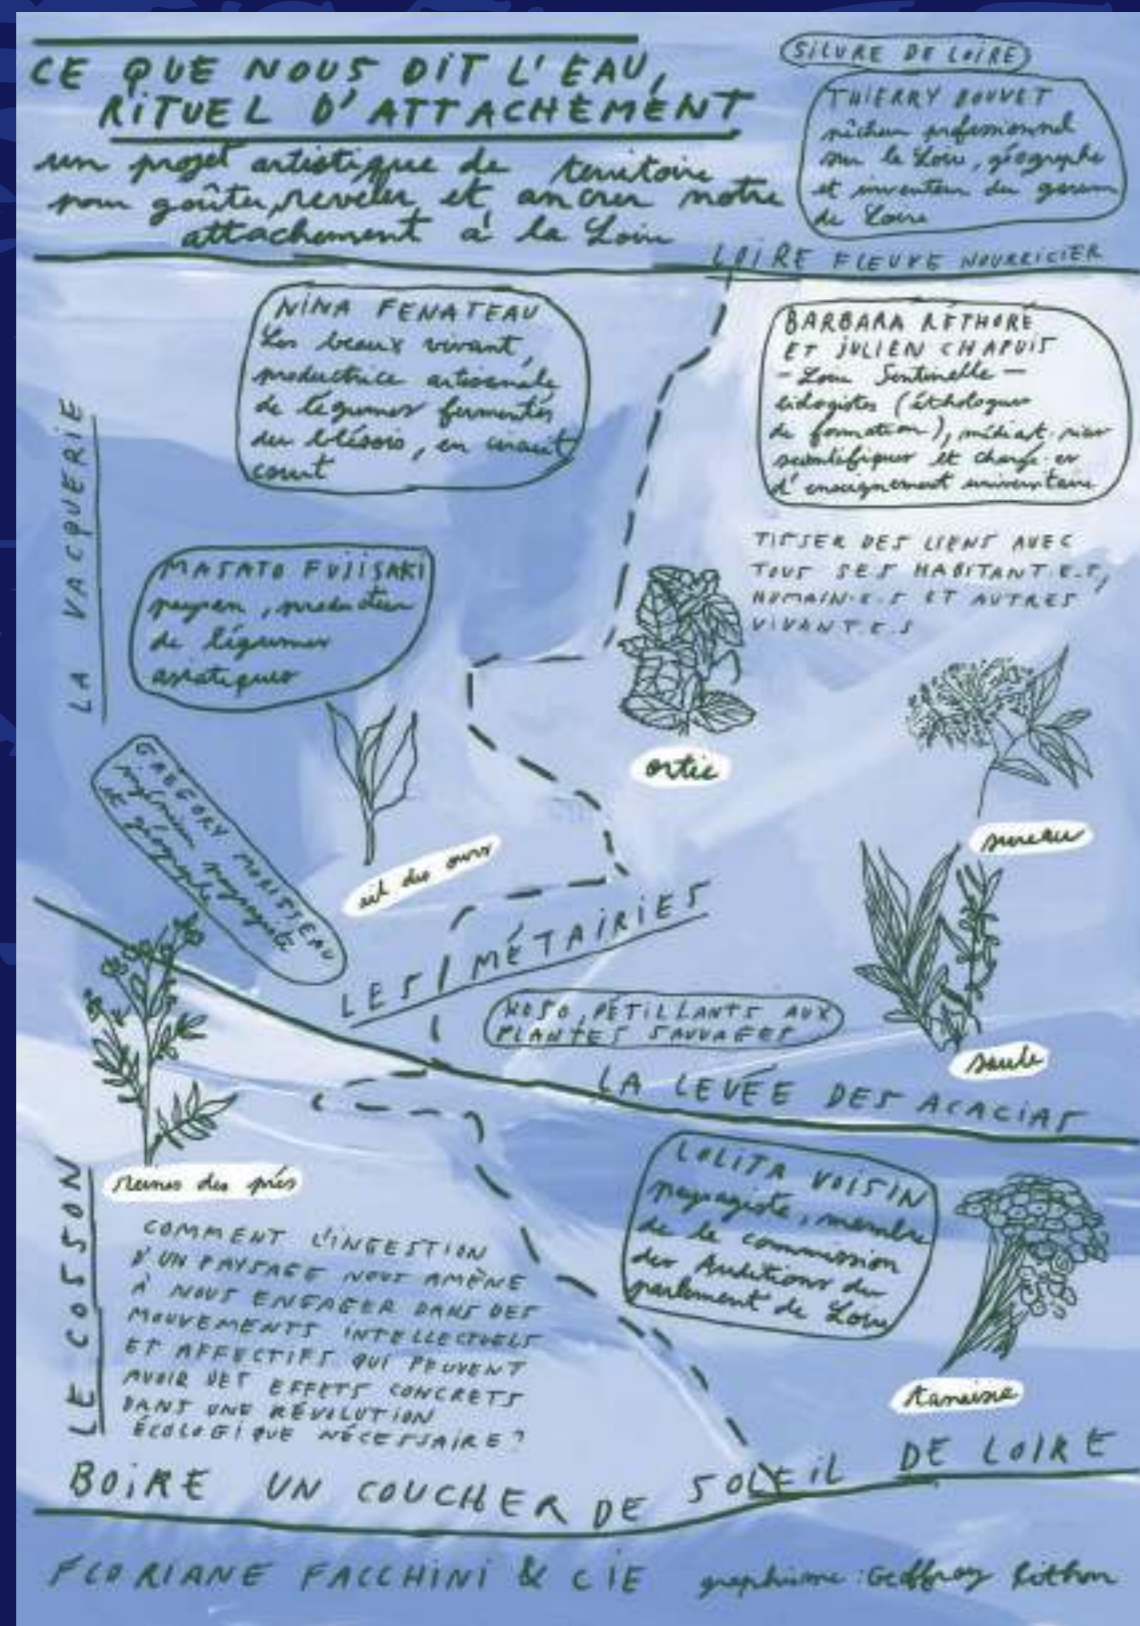 CE QUE NOUS DIT L'EAU,
RITUEL D'ATTACHEMENT
un projet artistique de territoire
pour goûter, révéler et ancrer notre
attachement à la Loire
SILURE DE LOIRE
THIERRY BOUVET
pêcheur professionnel
sur la Loire, géographe
et inventeur du garum
de Loire
LOIRE FLEUVE NOURRICIER
NINA FENATEAU
Les beaux vivant,
productrice artisanale
de légumes fermentés
du blésois, en circuit
court
BARBARA RÉTHORÉ
ET JULIEN CHAPUIS
- Loire Sentinelle -
biologistes (éthologues
de formation), médiat·rices
scientifiques et chargé·es
d'enseignement universitaire
LA VACQUERIE
MASATO FUJISAKI
paysan, producteur
de légumes
asiatiques
TISSER DES LIENS AVEC
TOUS SES HABITANT.E.S,
HUMAIN.E.S ET AUTRES
VIVANT.E.S
ortie
sureau
GRÉGORY MORISSEAU
ingénieur paysagiste
et géographe
ail des ours
LES MÉTAIRIES
KOSO, PÉTILLANTS AUX
PLANTES SAUVAGES
saule
LA LEVÉE DES ACACIAS
reines des prés
LE COSSON
LOLITA VOISIN
paysagiste, membre
de la commission
des Auditions du
parlement de Loire
COMMENT L'INGESTION
D'UN PAYSAGE NOUS AMÈNE
À NOUS ENGAGER DANS DES
MOUVEMENTS INTELLECTUELS
ET AFFECTIFS QUI PEUVENT
AVOIR DES EFFETS CONCRETS
DANS UNE RÉVOLUTION
ÉCOLOGIQUE NÉCESSAIRE ?
tanaisie
BOIRE UN COUCHER DE SOLEIL DE LOIRE
FLORIANE FACCHINI & CIE
graphisme : Geoffroy Pithon